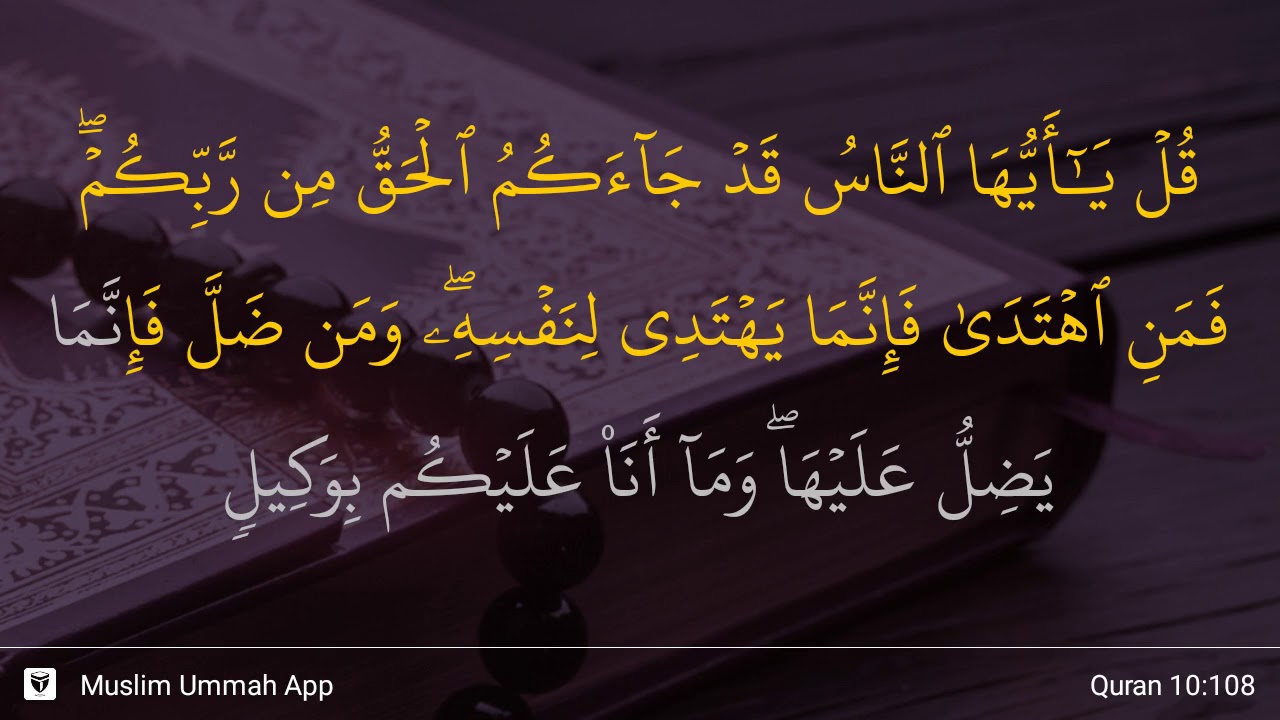 قُلۡ يَـٰٓأَيُّهَا ٱلنَّاسُ قَدۡ جَآءَكُمُ ٱلۡحَقُّ مِن رَّبِّكُمۡۖ
فَمَنِ ٱهۡتَدَىٰ فَإِنَّمَا يَهۡتَدِى لِنَفۡسِهِۦۖ وَمَن ضَلَّ فَإِنَّمَا
يَضِلُّ عَلَيۡهَاۖ وَمَآ أَنَا۠ عَلَيۡكُم بِوَكِيلٍ
Muslim Ummah App
Quran 10:108